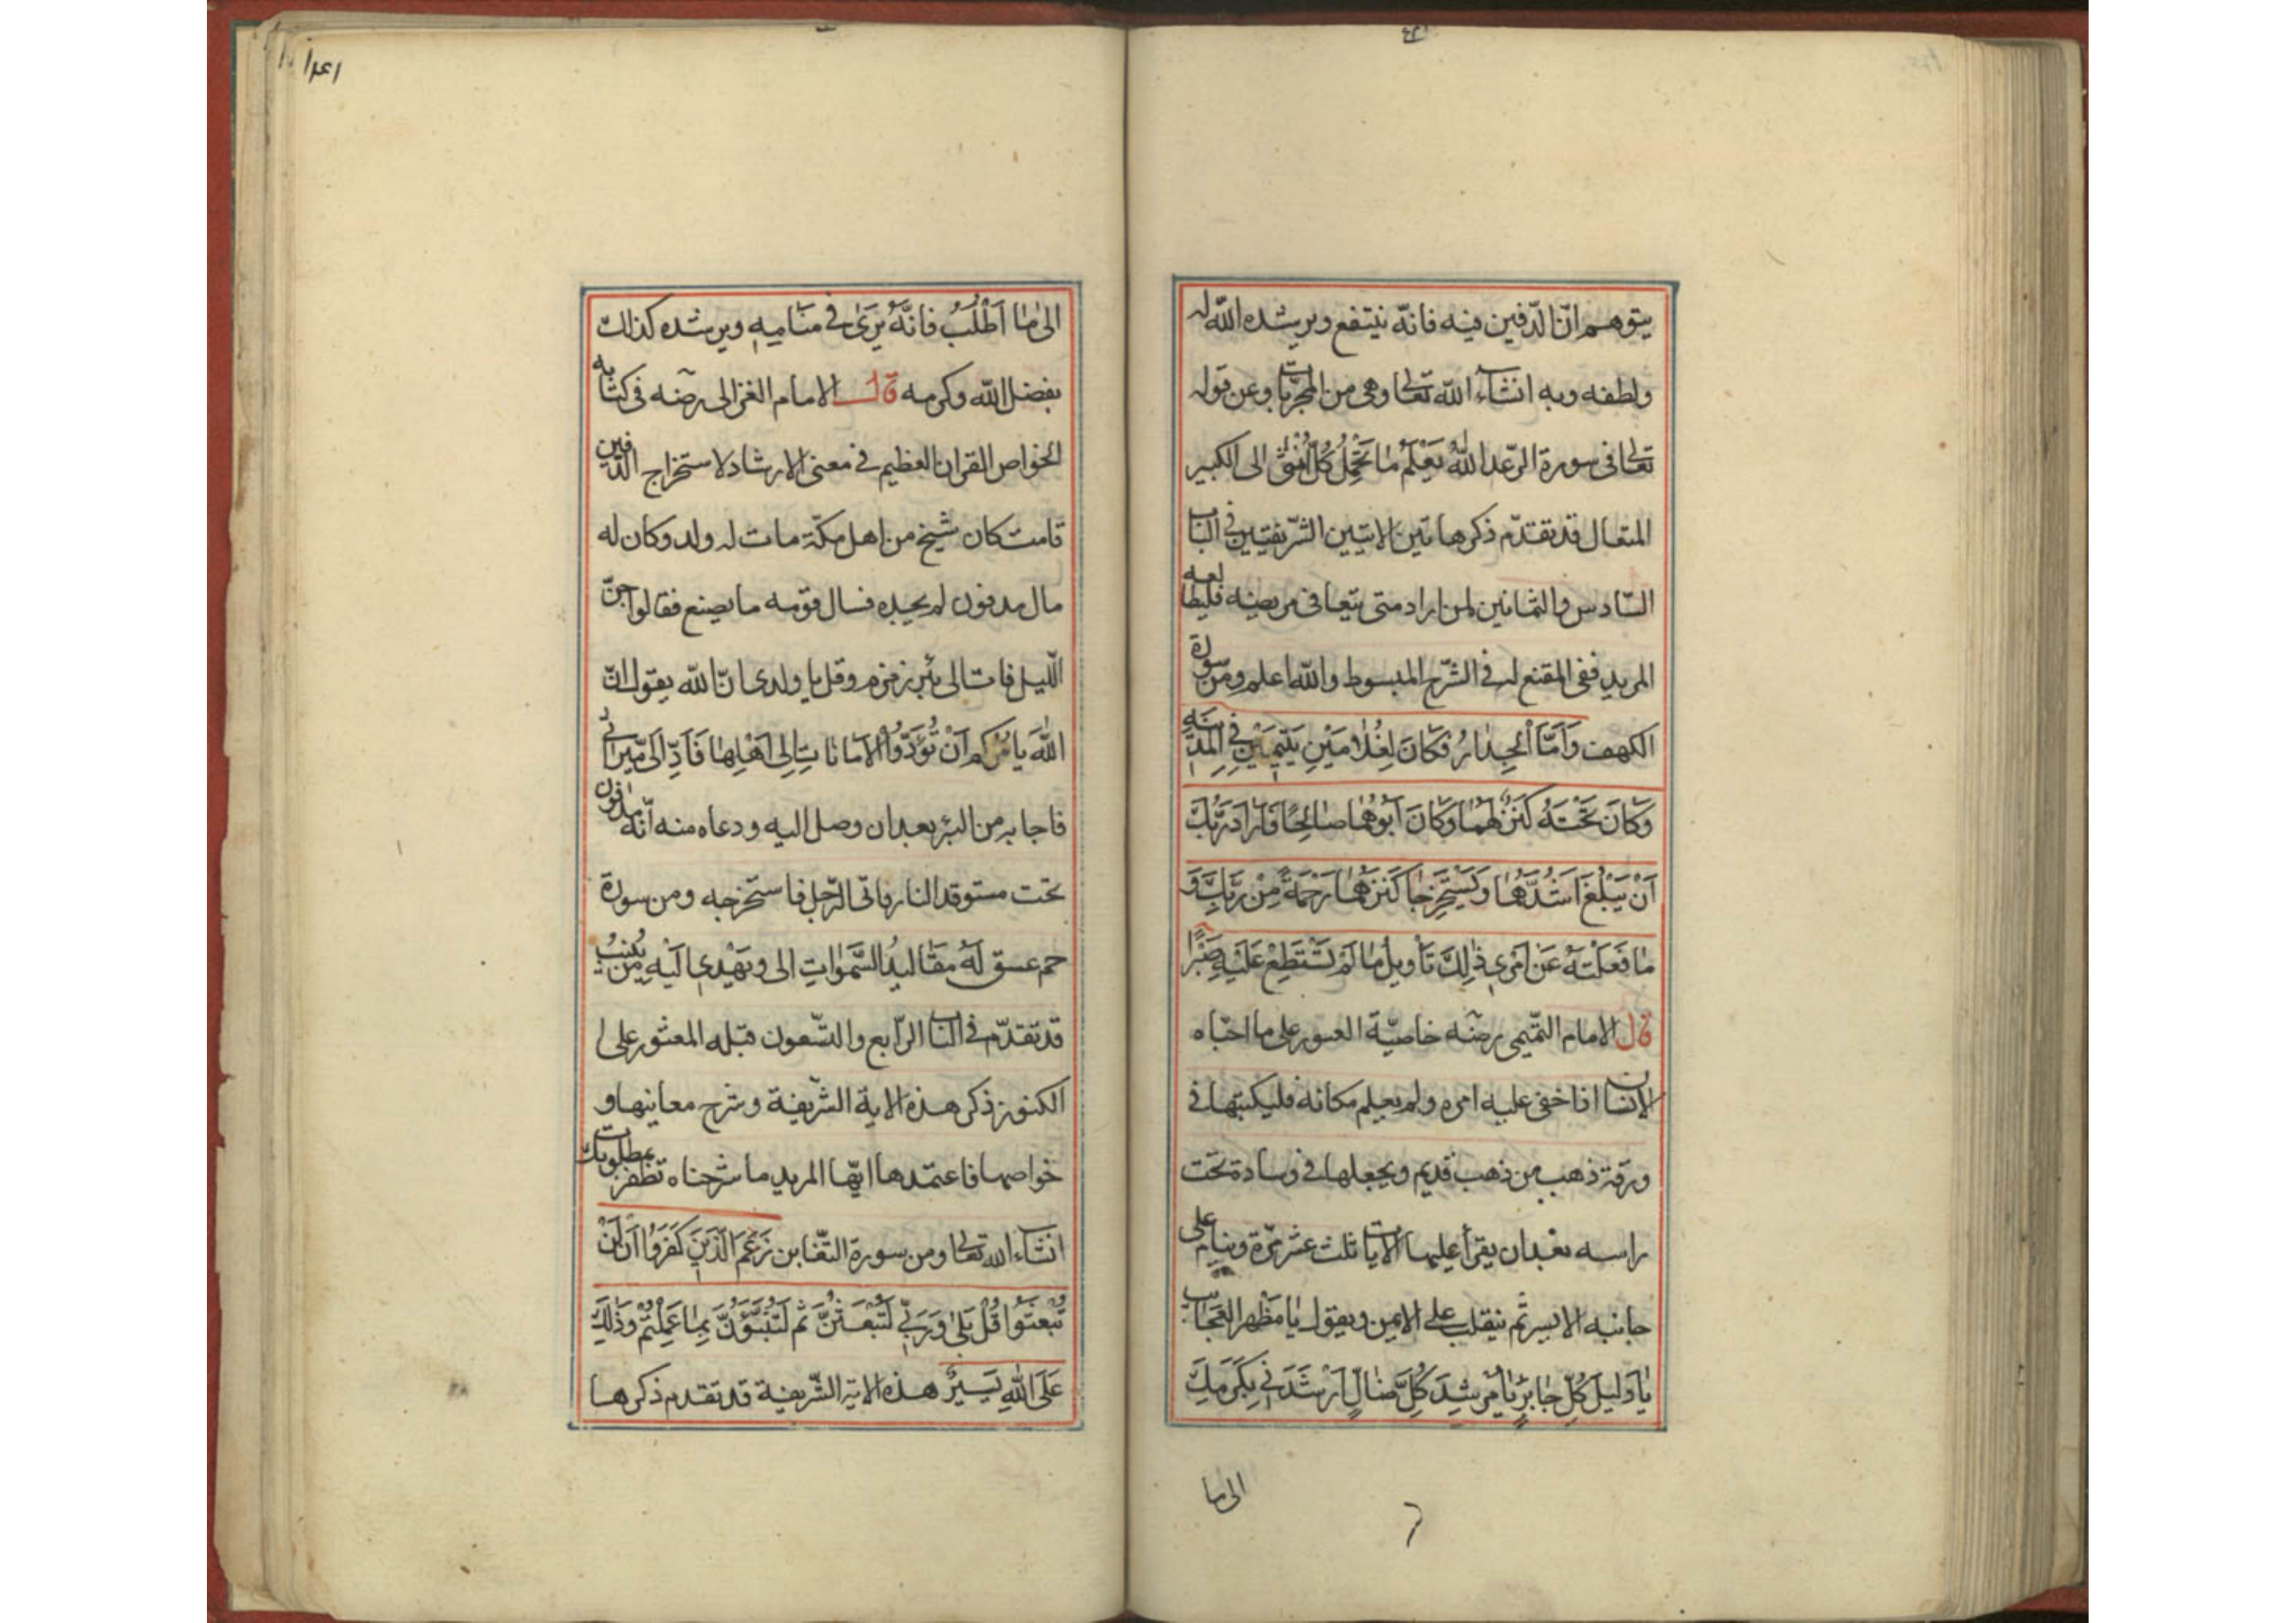 يتوهم انّ الدّفين فيه فانّه ينتفع ويرشده الله له
ولطفه وبه انشاء الله تعالى وهى من المجرّبات وعن قوله
تعالى فى سورة الرّعد اللهُ يَعْلَمُ مٰا تَحْمِلُ كُلُّ اُنْثىٰ الى الكبير
المتعال قد تقدّم ذكر هاتين الايتين الشّريفتين فى الباب
السّادس والثمانين لمن اراد متى يتعافى مريضه فليطالعه
المريد ففى المقنع له فى الشّرح المبسوط والله اعلم ومن سورة
الكهف وَاَمَّا الْجِدٰارُ فَكَانَ لِغُلٰامَيْنِ يَتيٖمَيْنِ فِى الْمَدٖينَةِ
وَكَانَ تَحْتَهُ كَنْزٌ لَهُمٰا وَكَانَ اَبُوهُمٰا صٰالِحًا فَاَرٰادَ رَبُّكَ
اَنْ يَبْلُغَا اَشُدَّهُمٰا وَيَسْتَخْرِجٰا كَنْزَهُمٰا رَحْمَةً مِنْ رَبِّكَ وَ
مٰا فَعَلْتُهُ عَنْ اَمْرٖى ذٰلِكَ تَأْويلُ مٰا لَمْ تَسْتَطِعْ عَلَيْهِ صَبْرًا
قال الامام التّميمى رضٓه خاصيّة العبور على ما اخباه
الانسان اذا خفى عليه امره ولم يعلم مكانه فليكتبها فى
ورقة ذهب من ذهب قديم ويجعلها فى وسادة تحت
راسه بعد ان يقرأ عليها الايات ثلث عشر مرّة وينام على
جانبه الايسر ثمّ ينقلب على الايمن ويقول يٰا مُظْهِرَ الْعَجَائِبِ
يٰا دَليلَ كُلِّ حٰائِرٍ يٰا مُرْشِدَ كُلِّ ضٰالٍّ اَرْشِدْنٖى بِكَرَمِكَ
الى ما
١٤١
الى مٰا اَطْلُبُ فَاِنَّهُ يَرىٰ فى منَامِهٖ ويرشده كذلك
بفضل الله وكرمه قال الامام الغزالى رضٓه فى كتابه
الخواص القران العظيم فى معنى الارشاد لاستخراج الدّفين
قامت كان شيخ من اهل مكّة مات له ولد وكان له
مال مدفون لم يجده فسال قومه ما يصنع فقالوا جنّ
اللّيل فات الى بئر زمزم وقل يا ولدى انّ الله يقول انّ
اللهَ يَامُرُكم اَنْ تُؤَدُّوا الْاَمٰانٰاتِ اِلٰى اَهْلِهٰا فَاَدِّ اِلَىَّ مٖيرٰاثٖى
فاجابه من البئر بعد ان وصل اليه ودعاه منه انّه مدفون
تحت مستوقد النار فاتى الرّجل فاستخرجه ومن سورة
حم عسق لَهُ مَقٰالٖيدُ السَّمٰوٰاتِ الى وَيَهْدٖى اِلَيْهِ مَنْ يُنيبُ
قد تقدّم فى الباب الرّابع والتّسعون قبله المعثور على
الكنوز ذكر هذه الاية الشّريفة وشرح معانيها و
خواصها فاعتمدها ايّها المريد ما شرحناه تظفر بمطلوبك
انشاء الله تعالى ومن سورة التّغابن زَعَمَ الَّذٖينَ كَفَرُوا اَنْ لَنْ
يُبْعَثُوا قُلْ بَلىٰ وَرَبّٖى لَتُبْعَثُنَّ ثُمَّ لَتُنَبَّؤُنَّ بِمٰا عَمِلْتُمْ وَذٰلِكَ
عَلَى اللهِ يَسٖيرٌ هذه الاية الشّريفة قد تقدم ذكرها